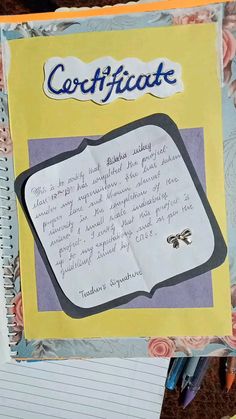 Certificate
This is to certify that
class 12th has completed the project
under my supervision. She has taken
proper care and shown utmost
sincerity in the completion of the
project. I certify that this project is
up to my expectation and as per the
guidelines issued by CBSE.
Teacher's Signature